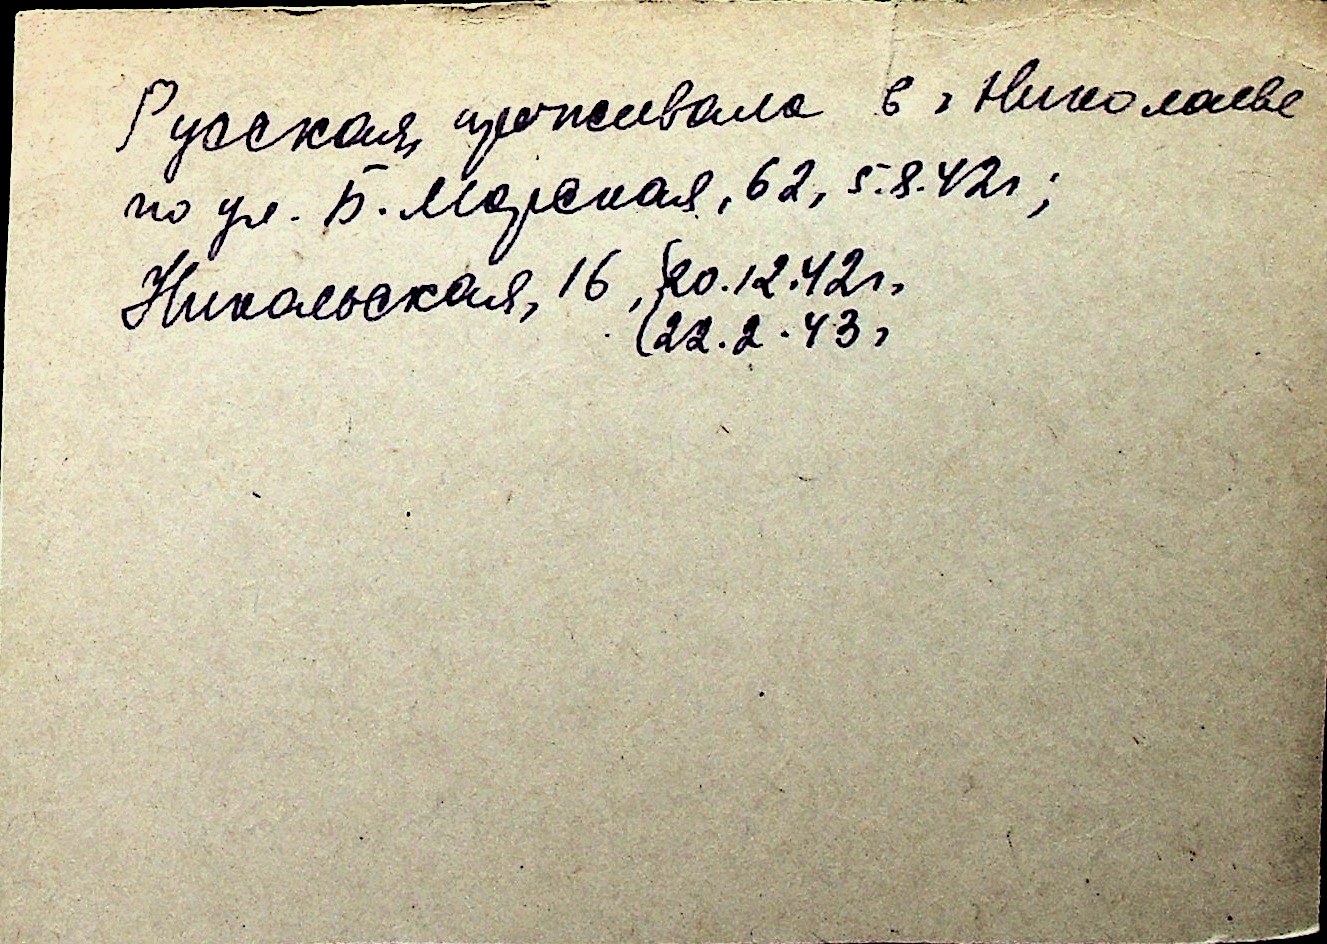 Русская, проживала в г. Николаеве
по ул. Б. Морская, 62, 5.8.42г;
Никольская, 16, (20.12.42г.
(22.2.43г